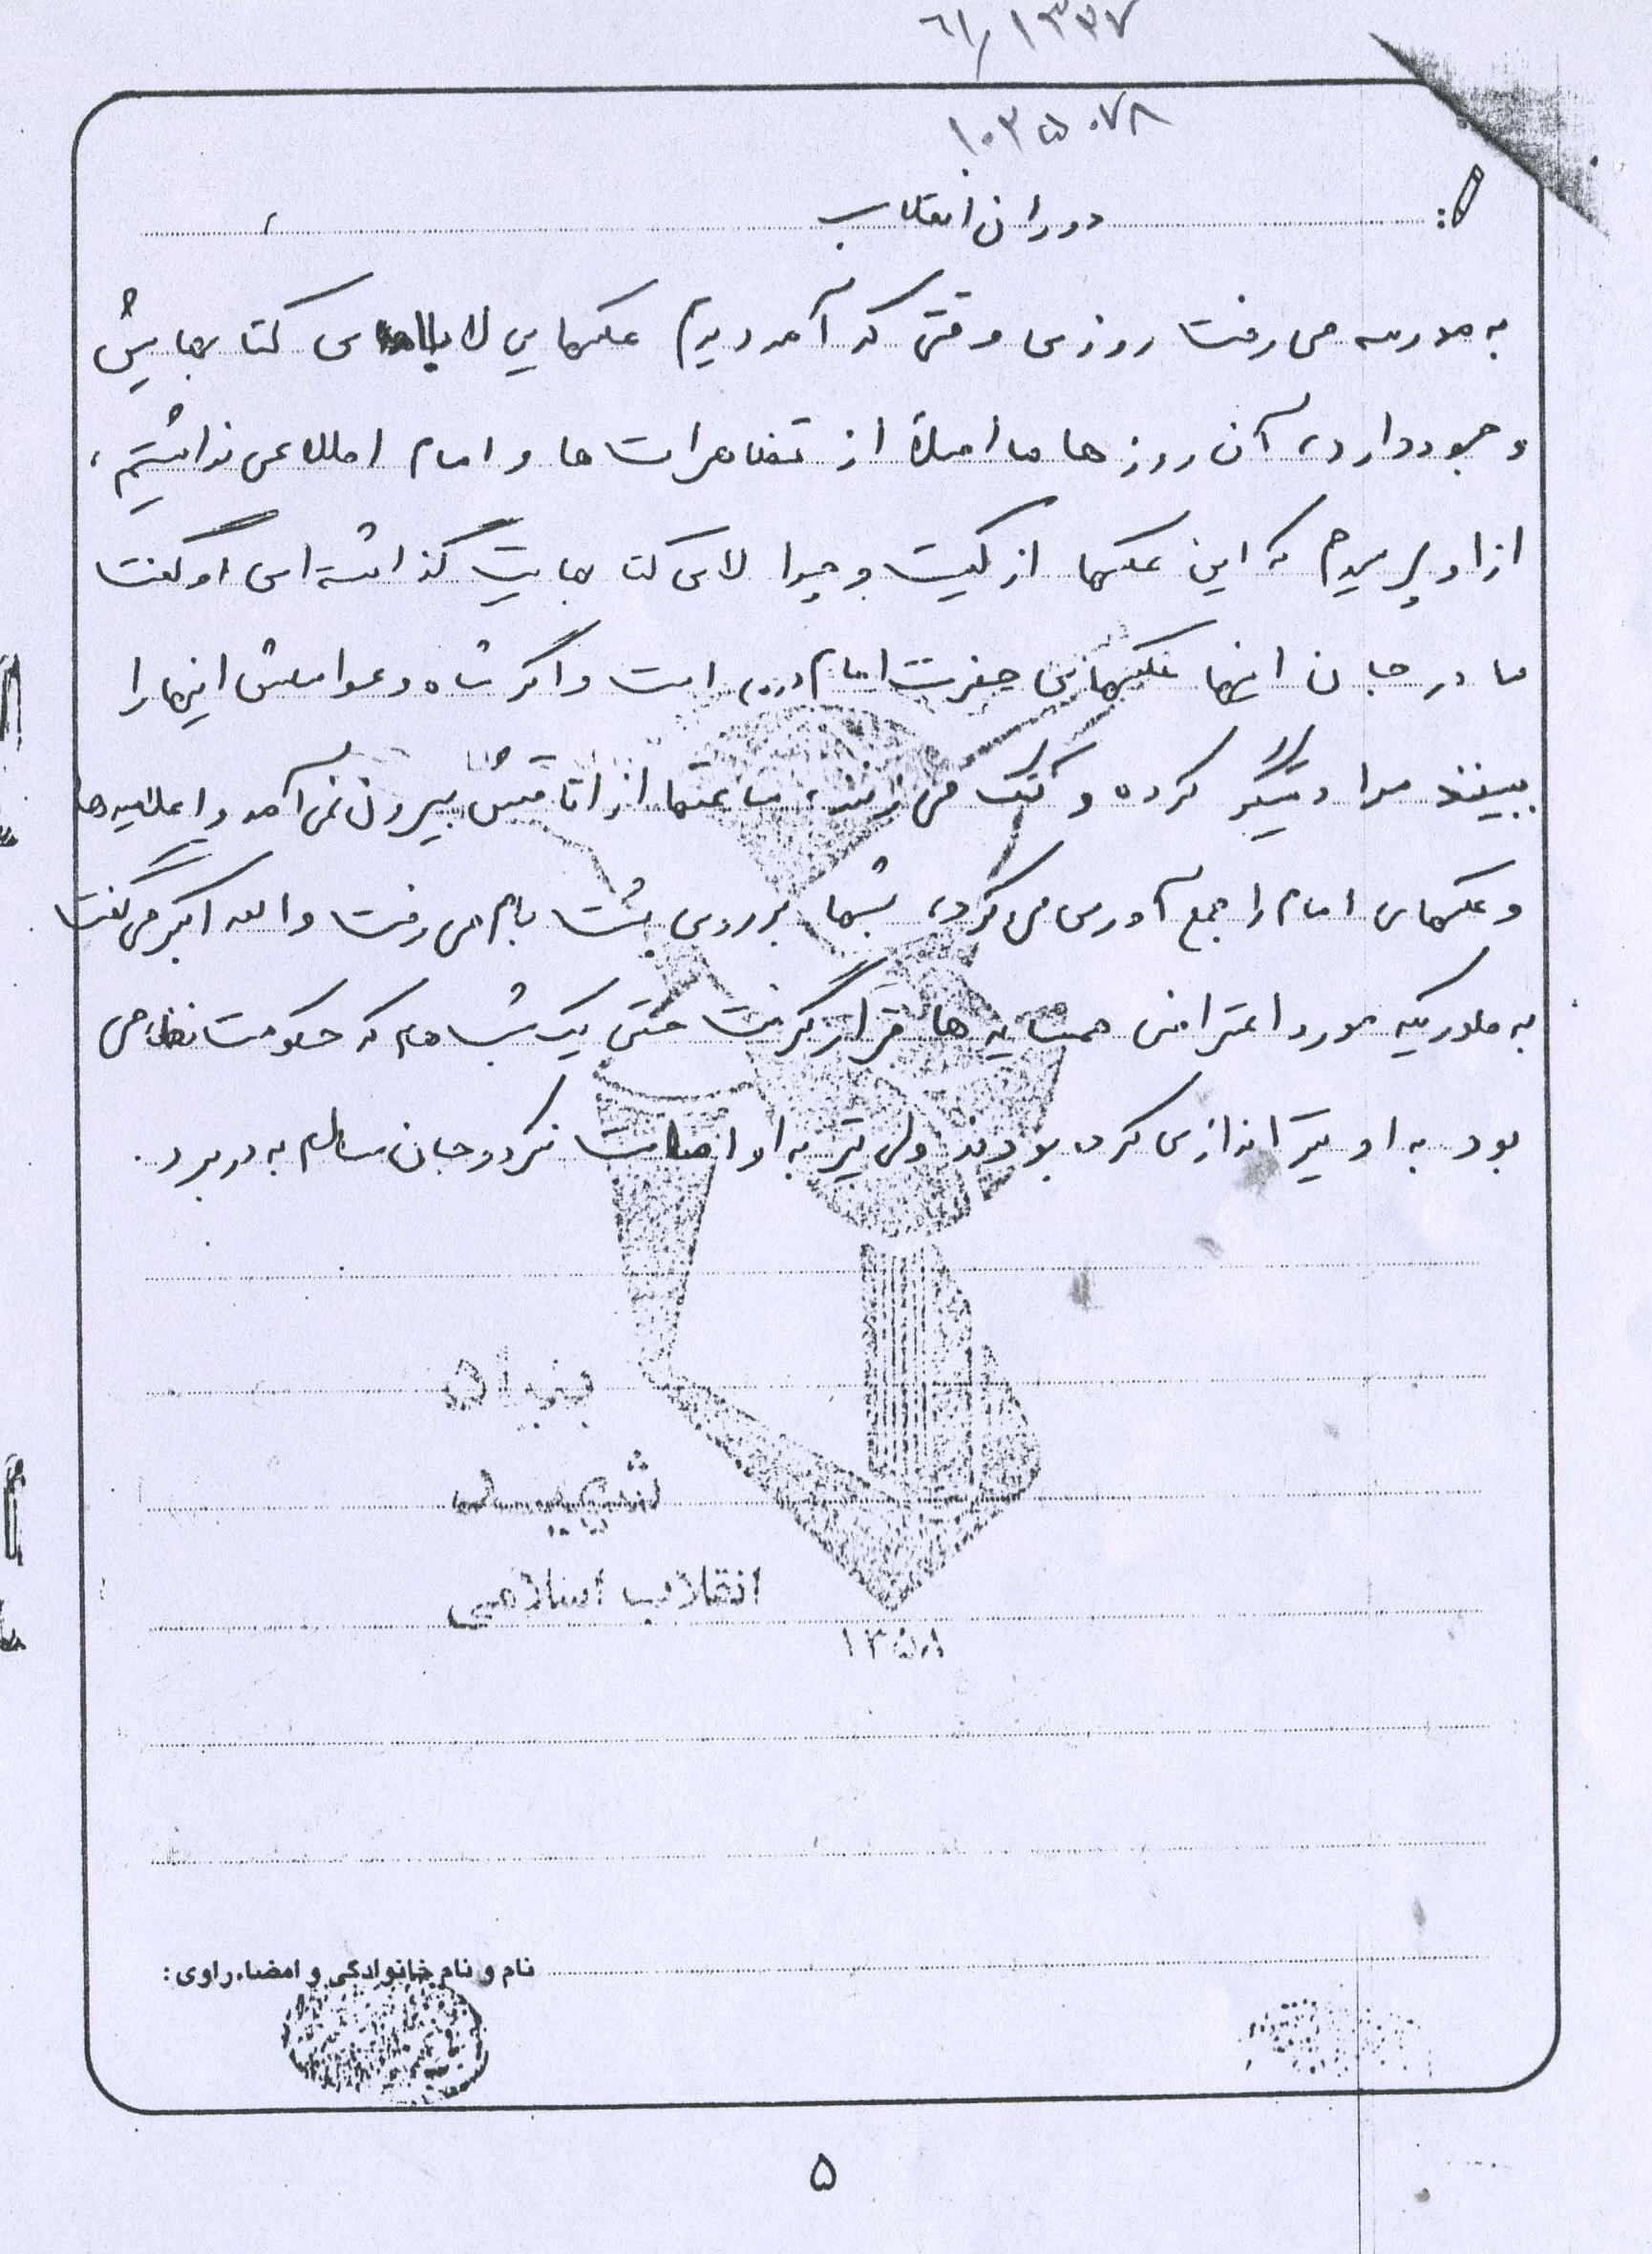 ۶۱/۱۳۳۷
۱۰۳۵۰۷۸
دوران انقلاب
به مدرسه می رفت روزی وقتی که آمد دیدم عکسهایی لابلای کتابهایش
وجود دارد، آن روزها ما اصلاً از تظاهرات ها و امام اطلاعی نداشتیم،
از او پرسیدم که این عکسها از کیست و چرا لای کتابهایت گذاشته ای او گفت
مادر جان اینها عکسهای حضرت امام (ره) است و اگر شاه و عواملش اینها را
ببینند مرا دستگیر کرده و کتک می زنند، ساعتها از اتاقش بیرون نمی آمد و اعلامیه ها
و عکسهای امام را جمع آوری می کرد، شبها بر روی پشت بام می رفت و الله اکبر می گفت
به طوریکه مورد اعتراض همسایه ها قرار گرفت حتی یک شب هم که حکومت نظامی
بود به او تیراندازی کرده بودند ولی تیر به او اصابت نکرد و جان سالم به در برد.
بنیاد
شهید
انقلاب اسلامی
۱۳۵۸
نام و نام خانوادگی و امضاء راوی:
۵